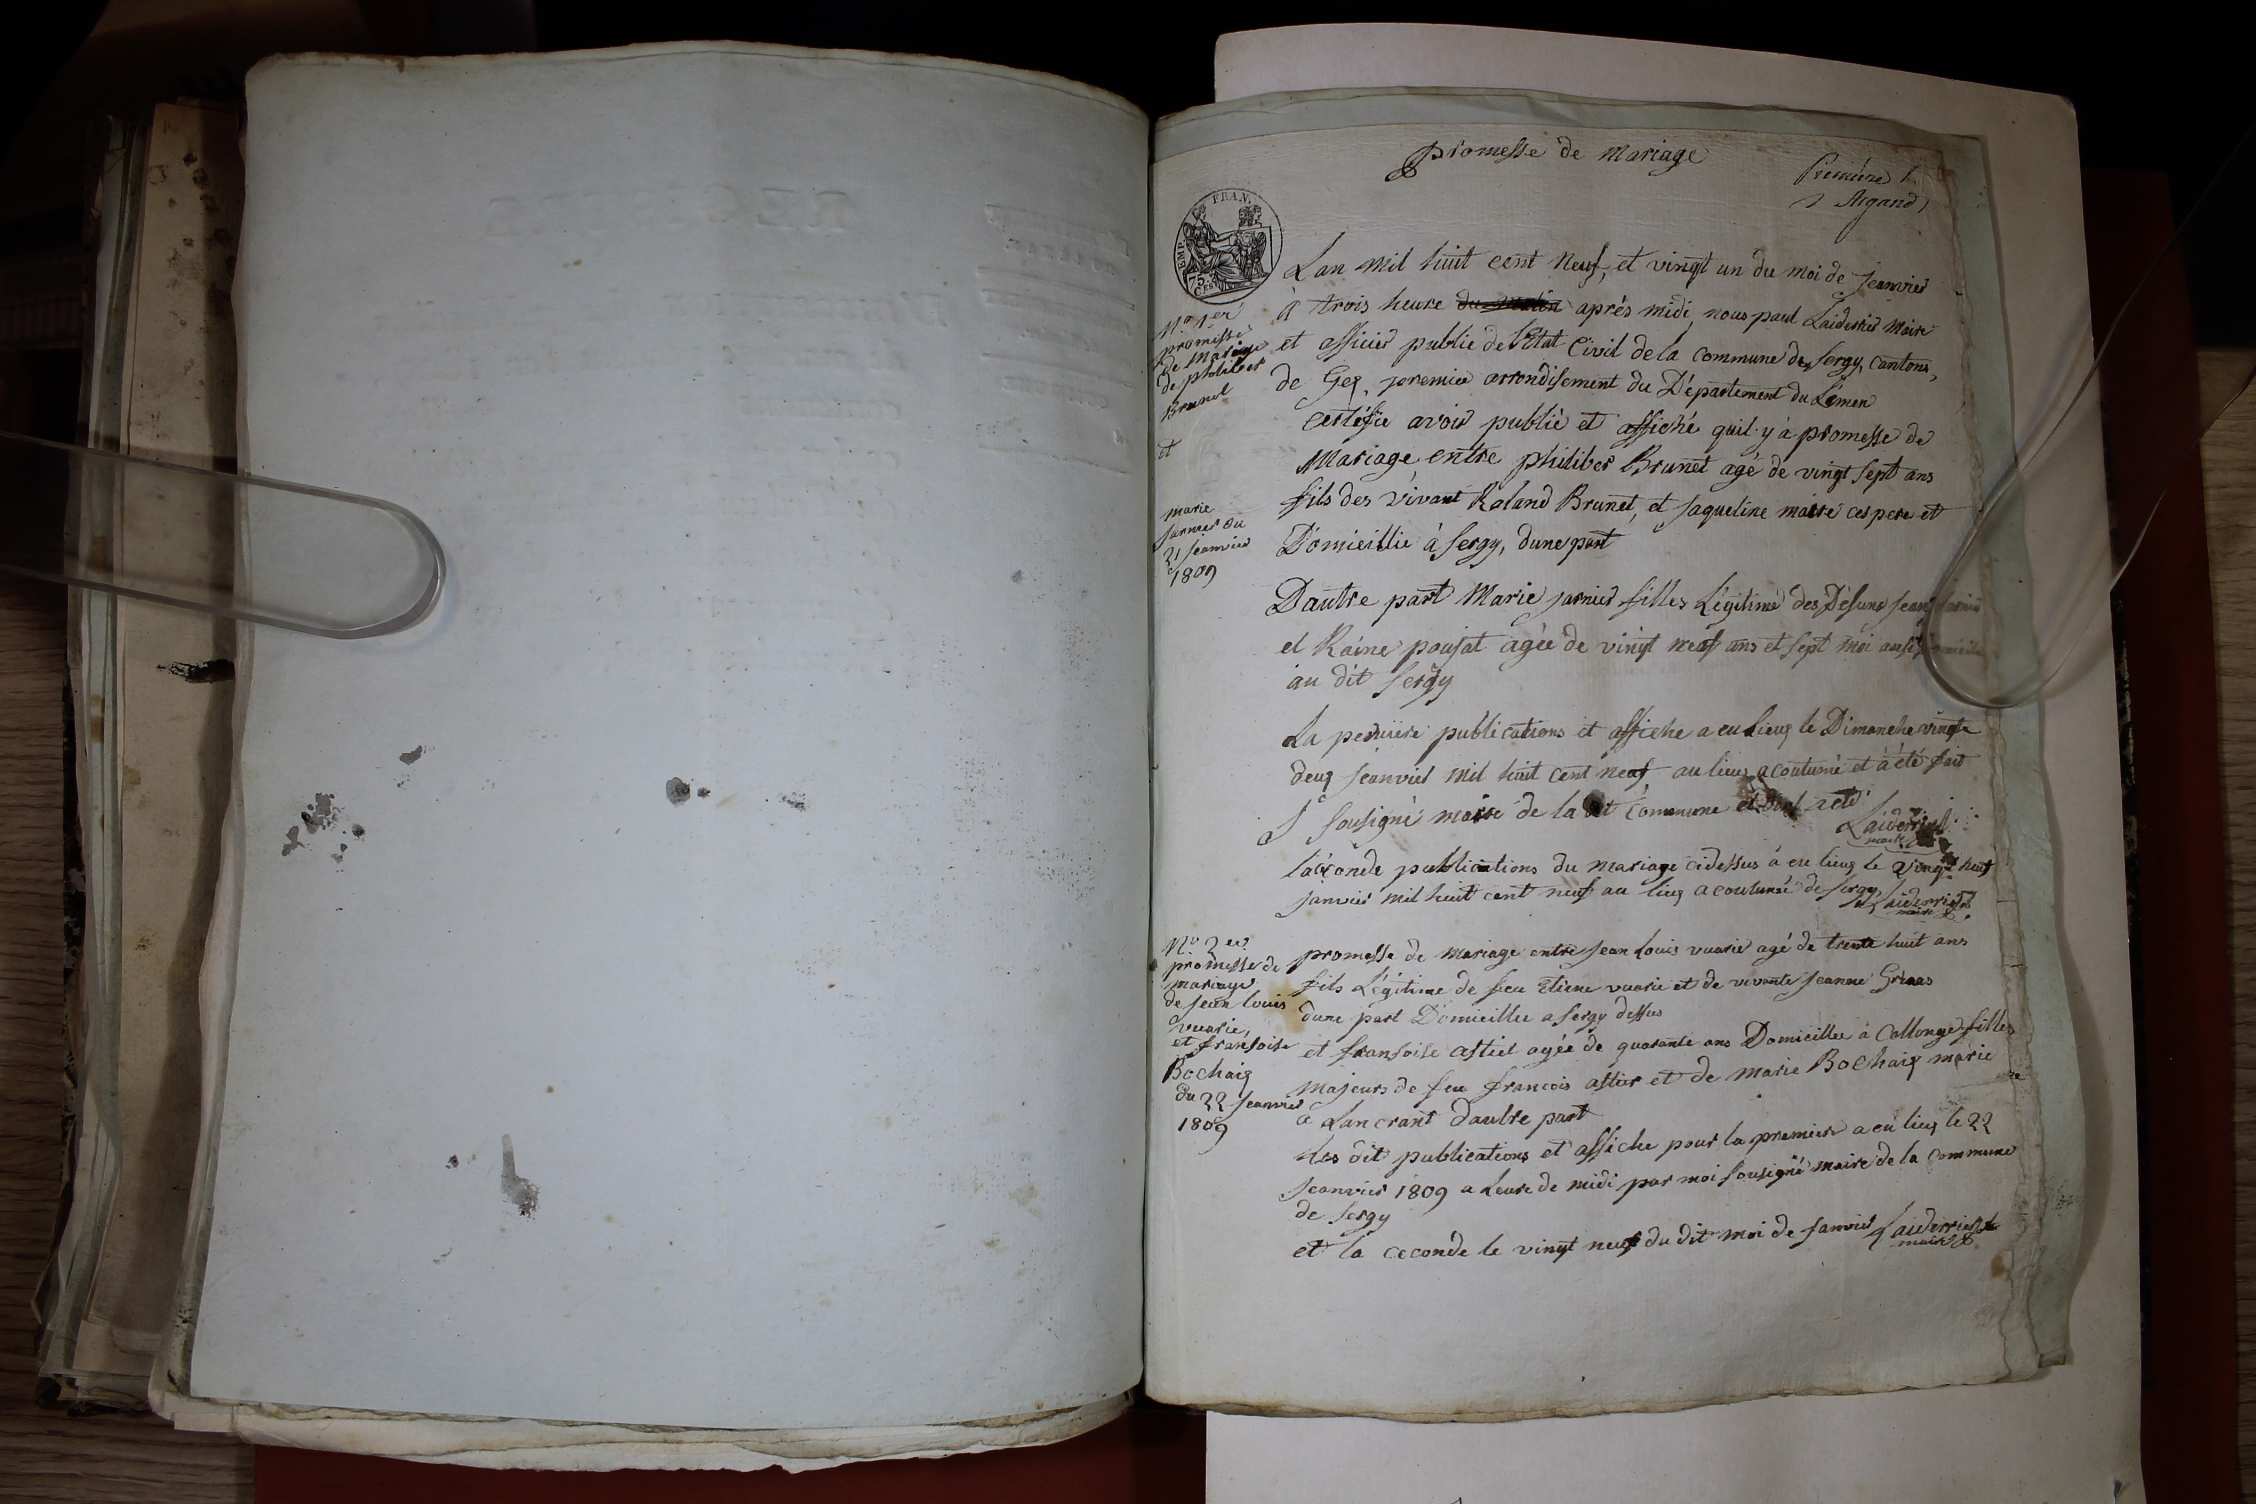 promesse de mariage
Première
Argand
FRAN.
EMP.
75.
CES
Lan mil huit cent neuf, et vingt un du moi de Jeanvier
à trois heure après midi, nous paul Laiderrier Maire
et officier public de l'Etat Civil de la commune de Sergy, Cantons,
de Gex, premier arrondisement du Département du Léman
Certéfie avoir publié et affiché quil y à promesse de
Mariage entre philiber Brunet agé de vingt sept ans
fils des vivant Roland Brunet, et Jaqueline maire ces pere et
Domicillié à Sergy, dune part
Dautre part Marie jarnier filles Légitime des Défunt Jean Jarnier
et Raine poujat agée de vingt neuf ans et sept moi ausi
au dit Sergy
La permiere publications et affiche a eu Lieux le Dimanche vingt
deux Jeanvier mil huit cent neuf au lieux acoutumé et à été fait
Sousigné maire de la dit Commune
Laiderrier
maire
lacconde publications du mariage cidessus à eu lieux le vingt neuf
janvier mil huit cent neuf au lieux acoutumé de Sergy Laiderrier
maire
promesse de mariage entre Jean Louis vuarié agé de trente huit ans
fils Légitime de feu Etiene vuarié et de vivante Jeanne Grinas
dune part Domicillié a Sergy dessus
et franfoise astier agée de quarante ans Domicillée à Collonge filles
majeurs de feu francois astier et de marie Bochaix marie
à Lancrant dautre part
Les dit publications et affiche pour la premiere a eu lieux le 22
Jeanvier 1809 a Leure de midi par moi sousigné maire de la commune
de Sergy
et la ceconde le vingt neuf du dit moi de Janvier Laiderrier
maire
N.o 1er
promesse
de Mariage
de philiber
Brunet
et
marie
Jarnier du
21 Jeanvier
1809
N.o 2er
promesse de
mariage
de Jean Louis
vuarié,
et franfoise
Bochaix
du 22 Jeanvier
1809